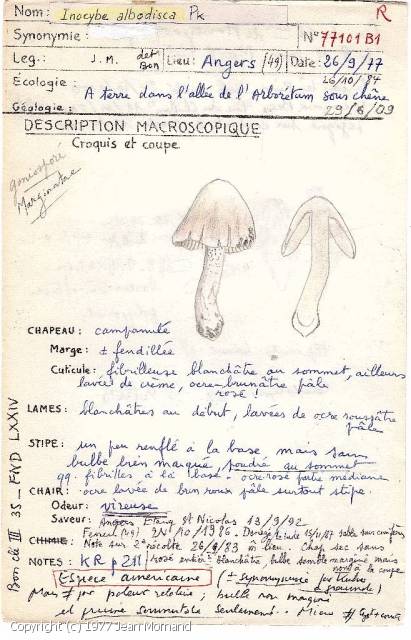 Nom: Inocybe albodisca Pk R
Synonymie: N° 77101 B1
Leg.: J.M. det Bon Lieu: Angers (49) Date: 26/9/77
Ecologie: 26/10/84
A terre dans l'allée de l'Arborétum sous chêne
Géologie: 29/6/09
DESCRIPTION MACROSCOPIQUE
Croquis et coupe
Marginatae
CHAPEAU: campanulé
Marge: ± fendillée
Cuticule: fibrilleuse blanchâtre au sommet, ailleurs
lavée de crème, ocre-brunâtre pâle
rosé!
LAMES: blanchâtres au début, lavées de ocre roussâtre
pâle
STIPE: un peu renflé à la base, mais sans
bulbe bien marqué, poudré au sommet
qq. fibrilles à la base - ocre rosé partie médiane
CHAIR: ocre lavée de brun roux pâle surtout stipe.
Odeur: vireuse
Saveur: Angers Etang St Nicolas 13/9/92
24/10/1986
CHIMIE: Note sur 2e récolte 26/9/83 m lieu. Chap sec sans
NOTES: KR p 211 rosé entier blanchâtre, bulbe semble marginé mais
non à la coupe
Espèce américaine (± synonymisée par Kuhner
à grammata)
mar # par odeur, bulbe non marginé
et pruine sommitale seulement. Micro # Cyst + courtes
Bon clé III 35 - FND LXXIV
Copyright (c) 1977 Jean Mornand